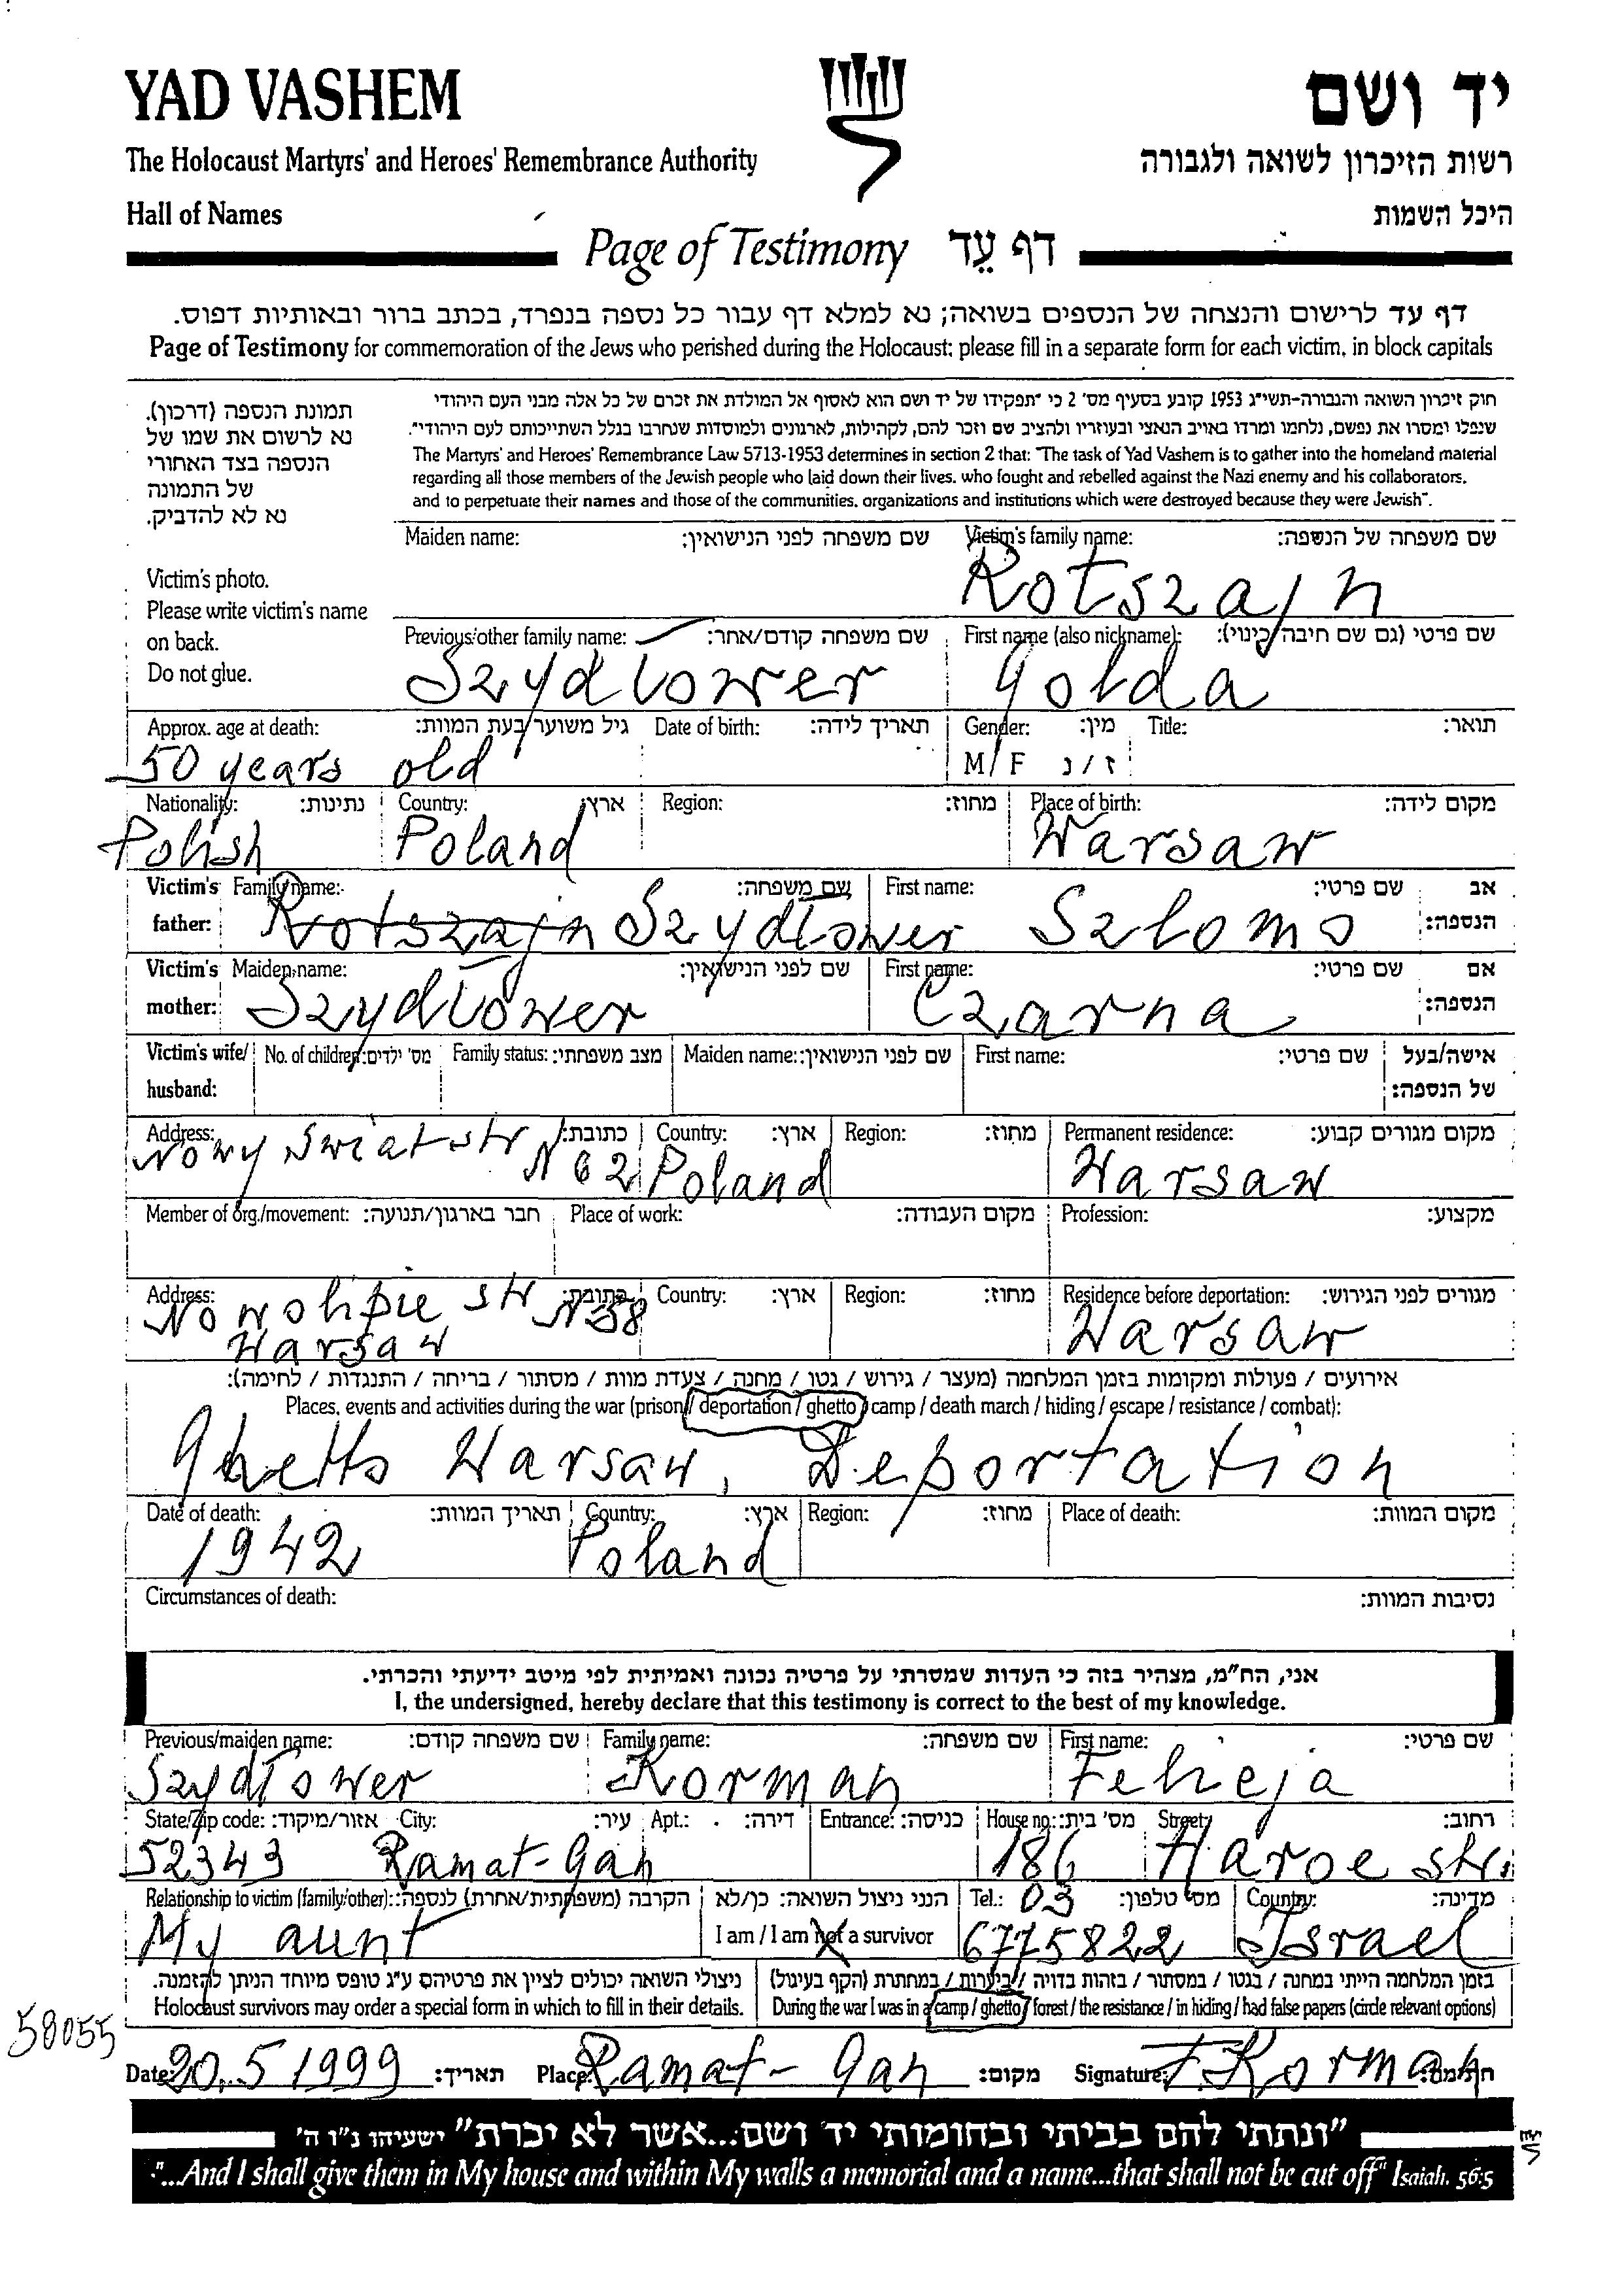 YAD VASHEM
יד ושם
The Holocaust Martyrs' and Heroes' Remembrance Authority
רשות הזיכרון לשואה ולגבורה
Hall of Names
היכל השמות
Page of Testimony דף עֵד
דף עד לרישום והנצחה של הנספים בשואה; נא למלא דף עבור כל נספה בנפרד, בכתב ברור ובאותיות דפוס.
Page of Testimony for commemoration of the Jews who perished during the Holocaust; please fill in a separate form for each victim, in block capitals
תמונת הנספה (דרכון).
נא לרשום את שמו של
הנספה בצד האחורי
של התמונה
נא לא להדביק.
Victim's photo.
Please write victim's name
on back.
Do not glue.
חוק זיכרון השואה והגבורה-תשי"ג 1953 קובע בסעיף מס' 2 כי "תפקידו של יד ושם הוא לאסוף אל המולדת את זכרם של כל אלה מבני העם היהודי
שנפלו ומסרו את נפשם, נלחמו ומרדו באויב הנאצי ובעוזריו ולהציב שם וזכר להם, לקהילות, לארגונים ולמוסדות שנחרבו בגלל השתייכותם לעם היהודי".
The Martyrs' and Heroes' Remembrance Law 5713-1953 determines in section 2 that: "The task of Yad Vashem is to gather into the homeland material
regarding all those members of the Jewish people who laid down their lives, who fought and rebelled against the Nazi enemy and his collaborators,
and to perpetuate their names and those of the communities, organizations and institutions which were destroyed because they were Jewish".
Maiden name: שם משפחה לפני הנישואין: Victim's family name: שם משפחה של הנספה:
Rotszajn
Previous/other family name: שם משפחה קודם/אחר: First name (also nickname): שם פרטי (גם שם חיבה/כינוי):
Szydłower Golda
Approx. age at death: גיל משוער בעת המוות: Date of birth: תאריך לידה: Gender: מין: Title: תואר:
50 years old M / F ז / נ
Nationality: נתינות: Country: ארץ: Region: מחוז: Place of birth: מקום לידה:
Polish Poland Warsaw
Victim's father: Family name: שם משפחה: First name: שם פרטי: אב הנספה:
Rotszajn Szydłower Szlomo
Victim's mother: Maiden name: שם לפני הנישואין: First name: שם פרטי: אם הנספה:
Szydłower Czarna
Victim's wife/ husband: No. of children: מס' ילדים: Family status: מצב משפחתי: Maiden name: שם לפני הנישואין: First name: שם פרטי: אישה/בעל של הנספה:
Address: כתובת: Country: ארץ: Region: מחוז: Permanent residence: מקום מגורים קבוע:
Nowy Swiat str N 62 Poland Warsaw
Member of org./movement: חבר בארגון/תנועה: Place of work: מקום העבודה: Profession: מקצוע:
Address: כתובת: Country: ארץ: Region: מחוז: Residence before deportation: מגורים לפני הגירוש:
Nowolipie str N 58 Warsaw
Warsaw
אירועים / פעולות ומקומות בזמן המלחמה (מעצר / גירוש / גטו / מחנה / צעדת מוות / מסתור / בריחה / התנגדות / לחימה):
Places, events and activities during the war (prison / deportation / ghetto / camp / death march / hiding / escape / resistance / combat):
Ghetto Warsaw, Deportation
Date of death: תאריך המוות: Country: ארץ: Region: מחוז: Place of death: מקום המוות:
1942 Poland
Circumstances of death: נסיבות המוות:
אני, הח"מ, מצהיר בזה כי העדות שמסרתי על פרטיה נכונה ואמיתית לפי מיטב ידיעתי והכרתי.
I, the undersigned, hereby declare that this testimony is correct to the best of my knowledge.
Previous/maiden name: שם משפחה קודם: Family name: שם משפחה: First name: שם פרטי:
Szydłower Korman Felicja
State/Zip code: אזור/מיקוד: City: עיר: Apt.: דירה: Entrance: כניסה: House no.: מס' בית: Street: רחוב:
52343 Ramat-Gan 186 Haroe str.
Relationship to victim (family/other): הקרבה (משפחתית/אחרת) לנספה: הנני ניצול השואה: כן/לא Tel.: 03 מס' טלפון: Country: מדינה:
My aunt I am / I am not a survivor 6775822 Israel
ניצולי השואה יכולים לציין את פרטיהם ע"ג טופס מיוחד הניתן להזמנה. בזמן המלחמה הייתי במחנה / בגטו / במסתור / בזהות בדויה / ביערות / במחתרת (הקף בעיגול)
Holocaust survivors may order a special form in which to fill in their details. During the war I was in a camp / ghetto / forest / the resistance / in hiding / had false papers (circle relevant options)
58055
Date: 20.5 1999 תאריך: Place: Ramat-Gan מקום: Signature: F. Korman חתימה:
"ונתתי להם בביתי ובחומותי יד ושם...אשר לא יכרת" ישעיהו נ"ו ה'
"...And I shall give them in My house and within My walls a memorial and a name...that shall not be cut off" Isaiah, 56:5